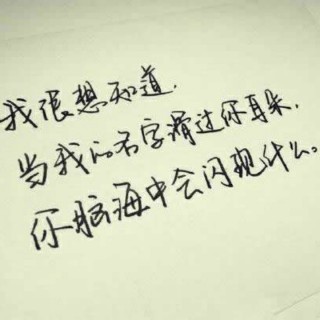 我很想知道.
当我的名字滑过你耳朵,
你脑海中会闪现什么。